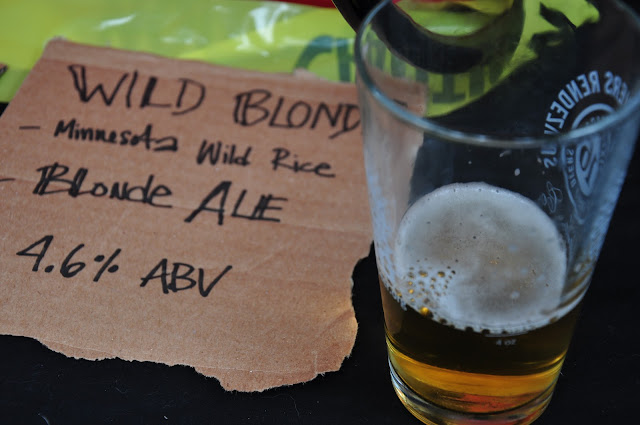 WILD BLOND
- Minnesota Wild Rice
- Blonde ALE
4.6% ABV
ERS RENDEZVOUS
4 OZ